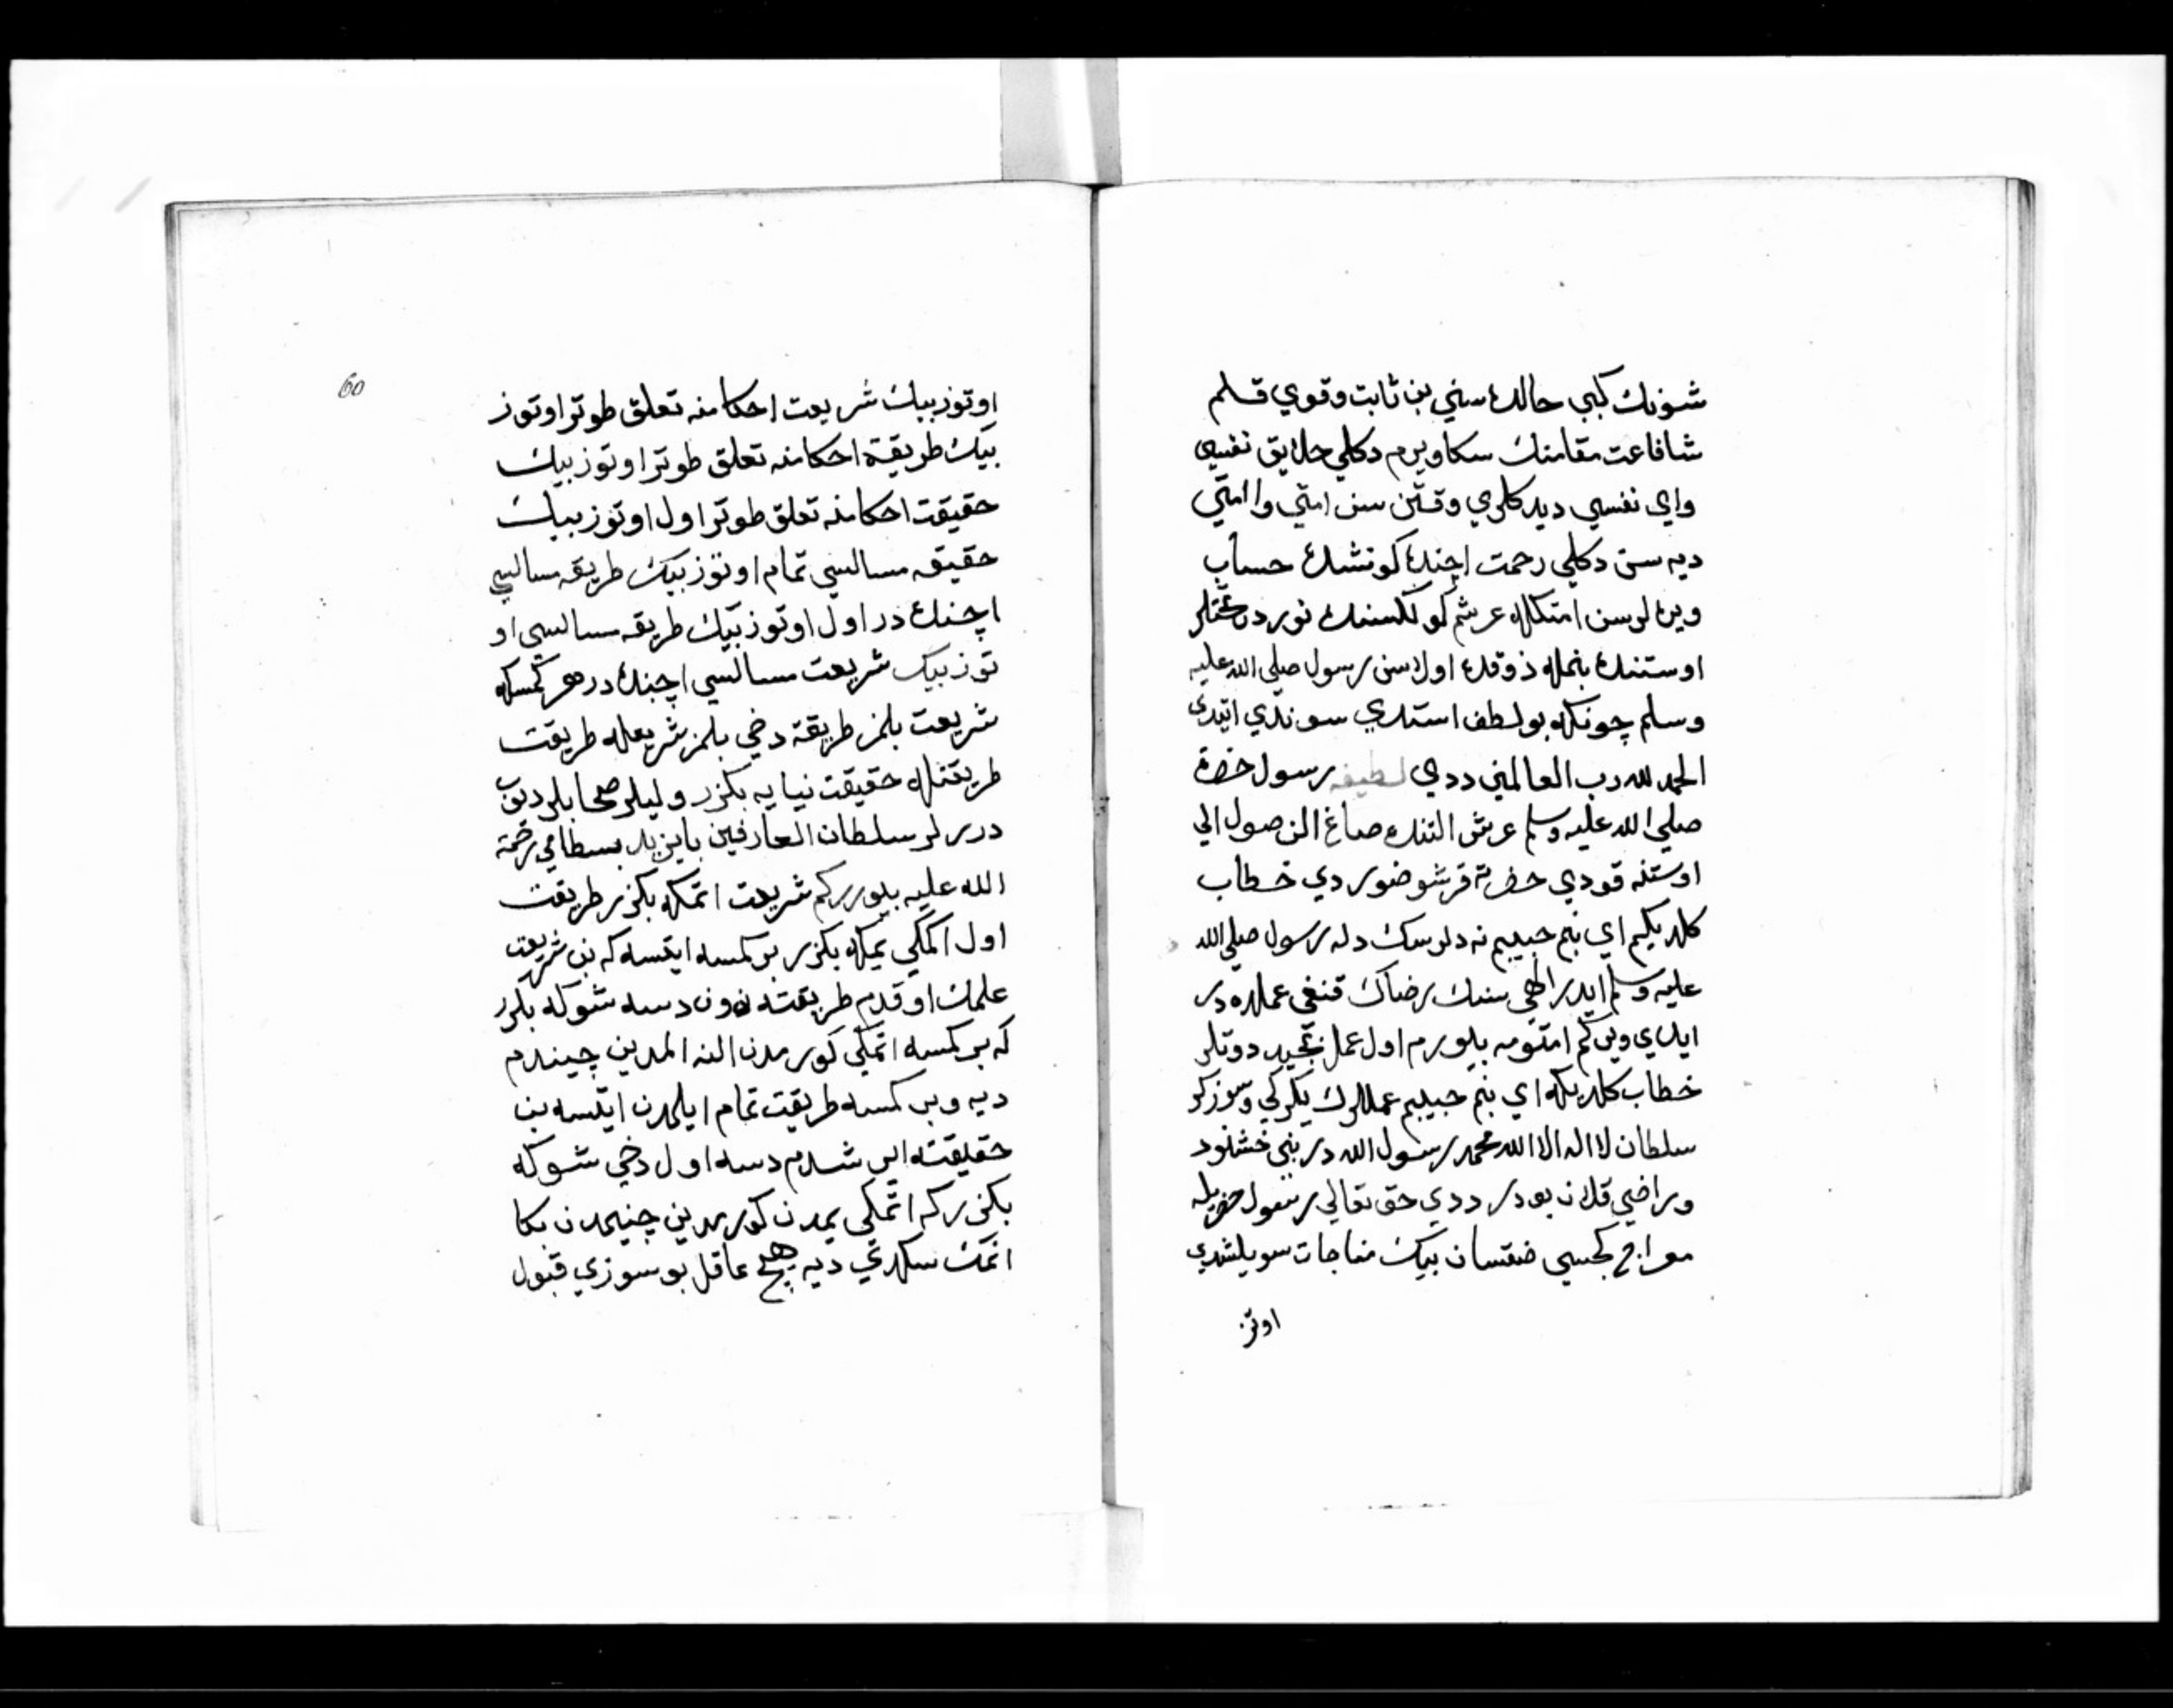 شونك كبي حالده سني بن ثابت وقوي قلم
شافاعت مقامنك سكا ويرم دكلي خلايق نفسي
واي نفسي ديدكلري وقتن سن امتي وا امتي
ديه سن دكلي رحمت اچنده كونشده حساب
ويره لر سن امتكله عرشم كولكسنده نوردن تختلر
اوستنده بنمله ذوقده اولاسن رسول صلى الله عليه
وسلم چونكه بو لطف استدي سوندي ايتدي
الحمد لله رب العالمين ددي لطيفه رسول حضرة
صلي الله عليه وسلم عرش التنده صاغ الن صول الي
اوستنه قودي حضرته قرشو ضوردي خطاب
كلديكم اي بنم حبيبم نه دلرسك دله رسول صلى الله
عليه وسلم ايدر الهي سنك رضاك قنغي عملده در
ايدي ويركم امتومه بيلورم اول عمل دوتلر
خطاب كلديكه اي بنم حبيبم عمللرك يكركي وسوزلر
سلطان لا اله الا الله محمد رسول الله در بني خشنود
وراضي قلان بودر ددي حق تعالي رسول حضرتيله
معراج كجسي ضقسان بيك مناجات سويلشدي
اوتز
60
اوتوز بيك شريعت احكامنه تعلق طوتر اوتوز
بيك طريقة احكامنه تعلق طوتر اوتوز بيك
حقيقت احكامنه تعلق طوتر اول اوتوز بيك
حقيقه مسالسي تمام اوتوز بيك طريقه مسالسي
اچنده در اول اوتوز بيك طريقه مسالسي او
توز بيك شريعت مسالسي اچنده در هر كمسكه
شريعت بلمز طريقة دخي بلمز شريعتله طريقت
طريقتله حقيقت نيايه بكزر وليلر صحابلر دن
درر لر سلطان العارفين بايزيد بسطامي رحمة
الله عليه بيورركم شريعت اتمكه بكزر طريقت
اول اكمكي يمكه بكزر بر كمسه ايتسه كه بن شريعت
علمك اوقدم طريقته دون دسه شوكه بكزر
كه بر كمسه اتمكي كورمدن النه المدين چيندم
ديه وبر كمسه طريقت تمام ايلمدن ايتسه بن
حقيقته ارشدم دسه اول دخي شوكه
بكزر كه اتمكي يمدن كورمدين چنيمدن بكا
اتمك سكدي ديه هيچ عاقل بو سوزي قبول